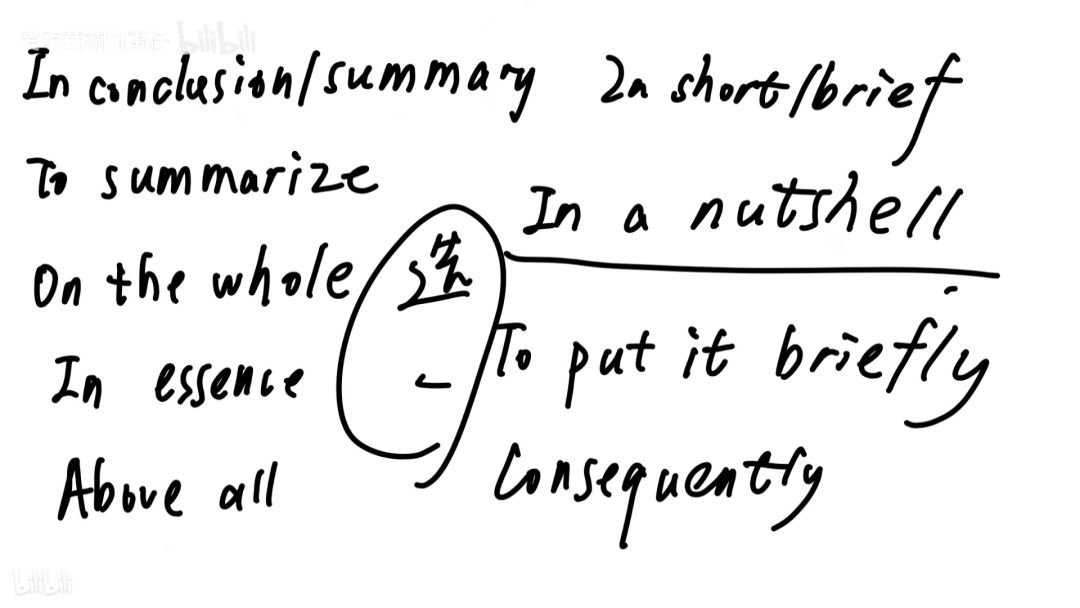 In conclusion/summary
To summarize
On the whole
In essence
Above all
选
一
In short/brief
In a nutshell
To put it briefly
Consequently
bilibili
bilibili